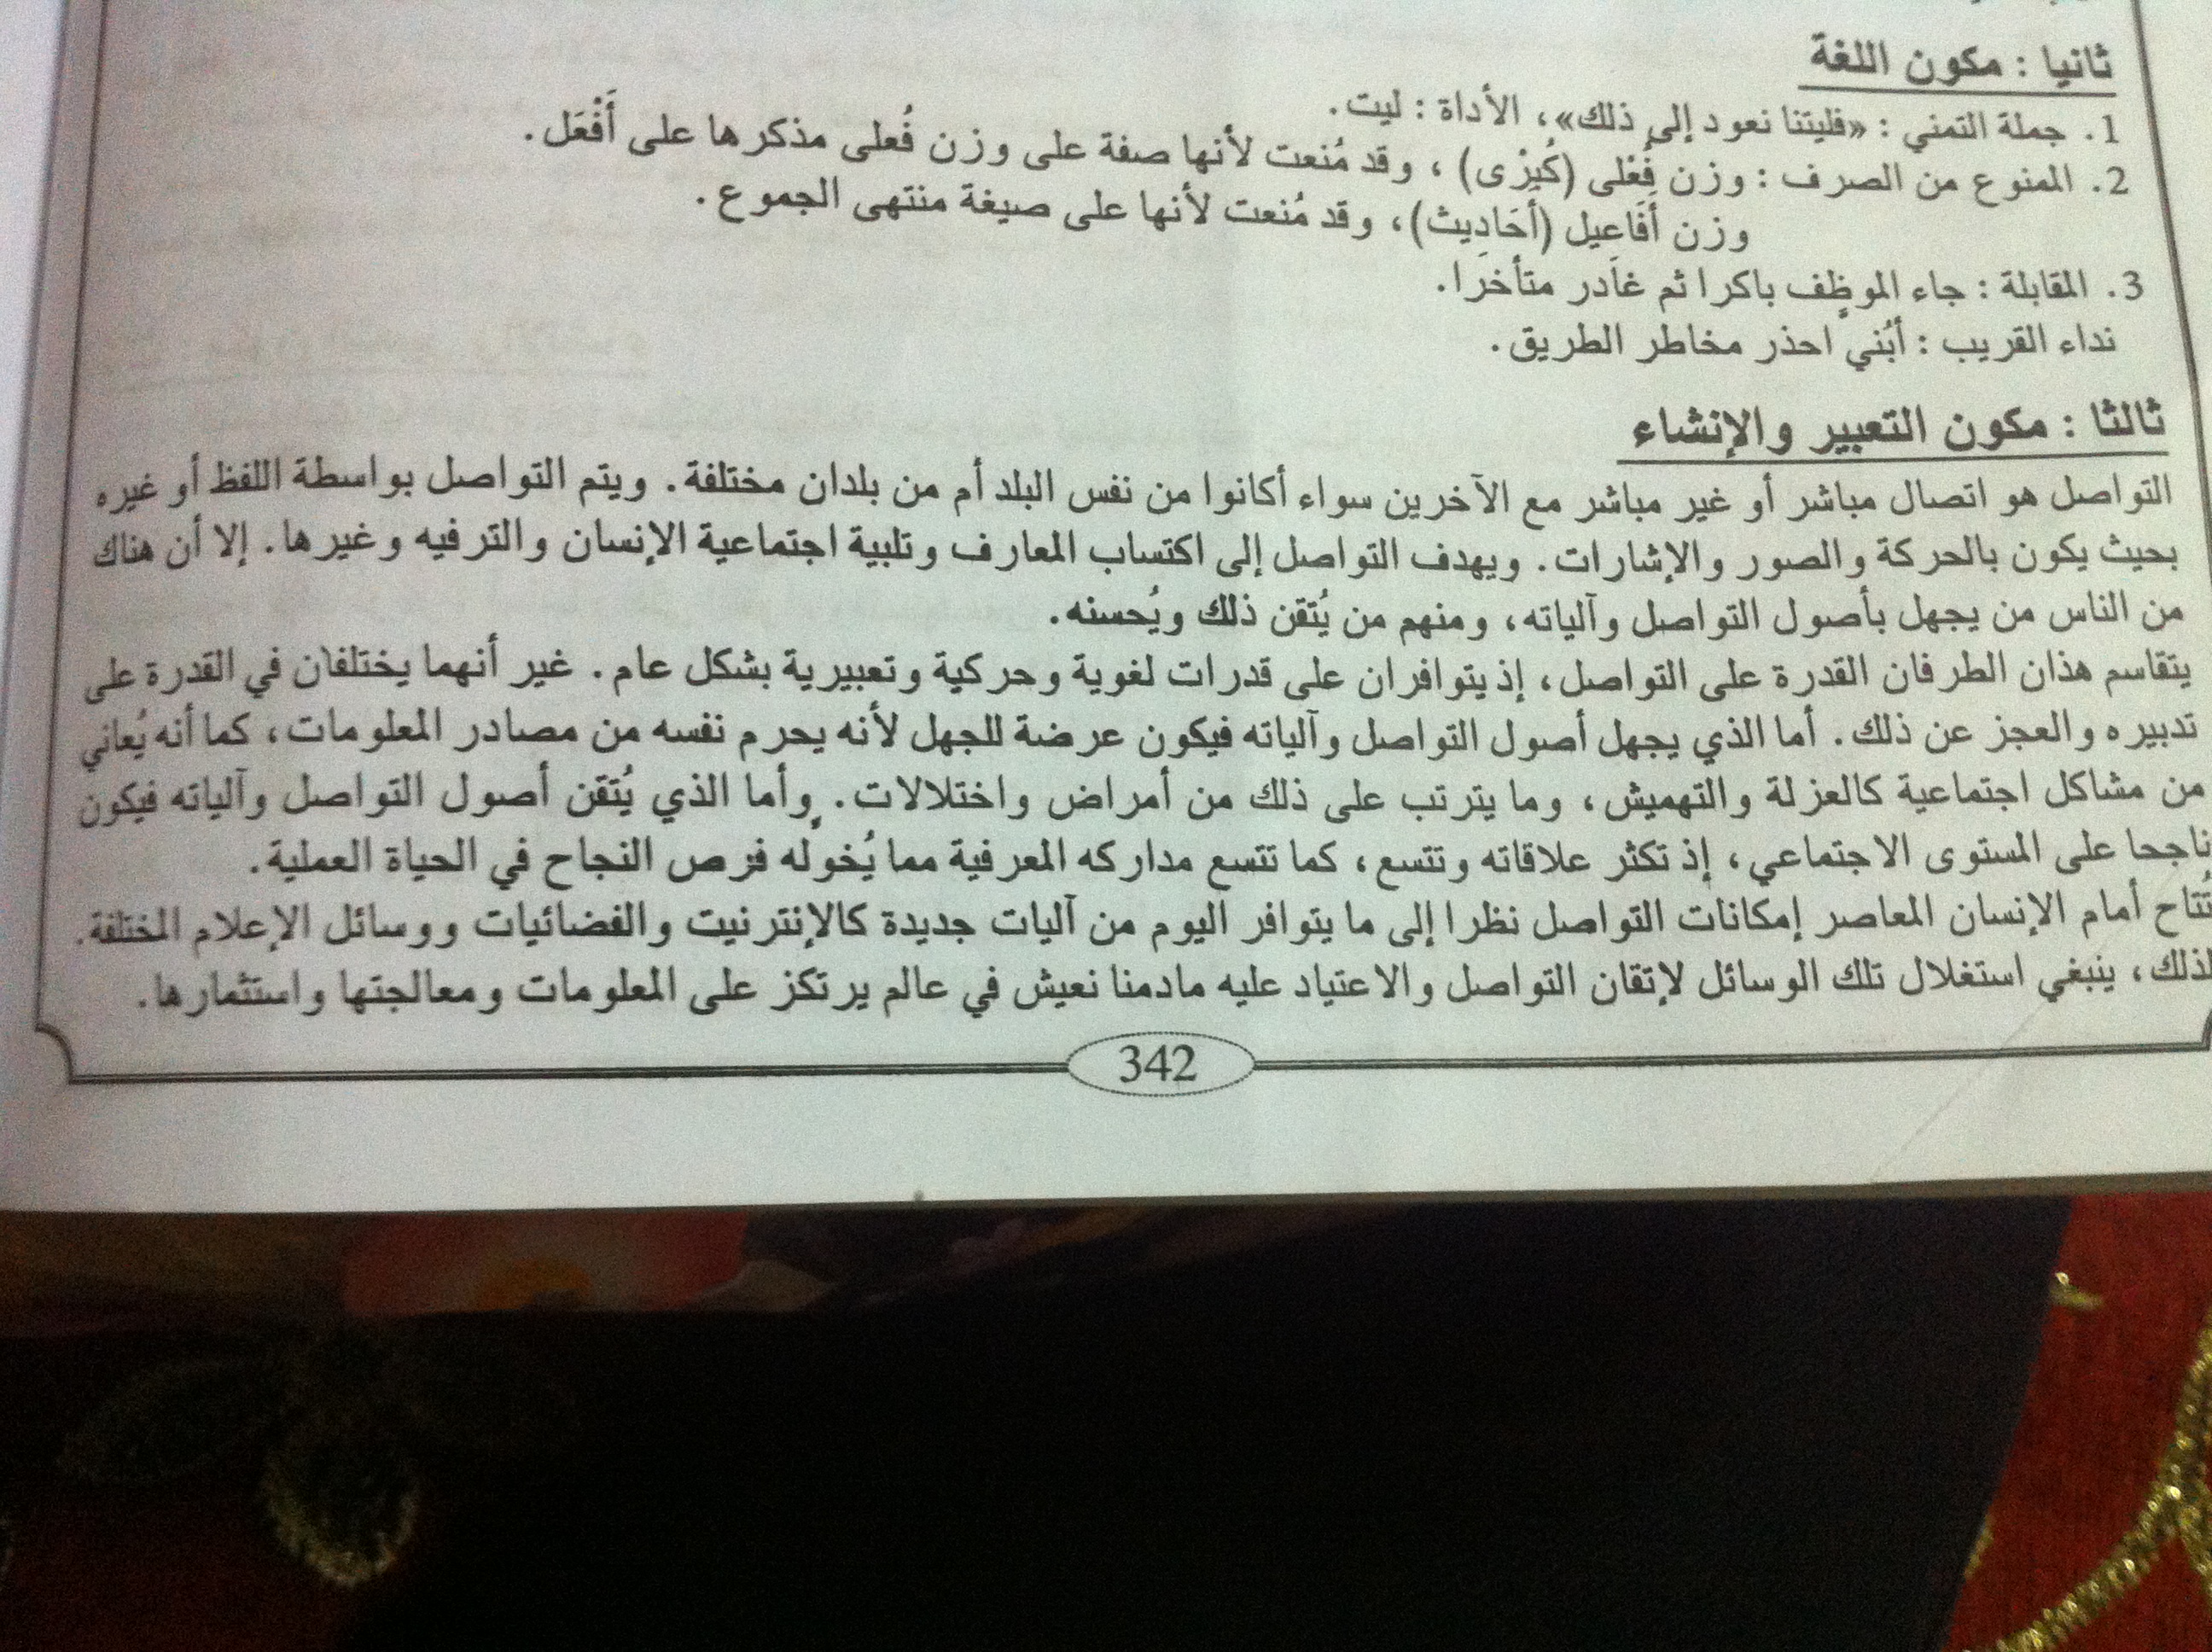 ثانيا : مكون اللغة
1. جملة التمني : «فليتنا نعود إلى ذلك»، الأداة : ليت.
2. الممنوع من الصرف : وزن فُعْلى (كُبْرْى) ، وقد مُنعت لأنها صفة على وزن فُعلى مذكرها على أَفْعَل.
وزن أَفَاعِيل (أحَادِيث)، وقد مُنعت لأنها على صيغة منتهى الجموع.
3. المقابلة : جاء الموظف باكرا ثم غادر متأخرا.
نداء القريب : أبُني احذر مخاطر الطريق.
ثالثا : مكون التعبير والإنشاء
التواصل هو اتصال مباشر أو غير مباشر مع الآخرين سواء أكانوا من نفس البلد أم من بلدان مختلفة. ويتم التواصل بواسطة اللفظ أو غيره
بحيث يكون بالحركة والصور والإشارات. ويهدف التواصل إلى اكتساب المعارف وتلبية اجتماعية الإنسان والترفيه وغيرها. إلا أن هناك
من الناس من يجهل بأصول التواصل وآلياته، ومنهم من يُتقن ذلك ويُحسنه.
يتقاسم هذان الطرفان القدرة على التواصل، إذ يتوافران على قدرات لغوية وحركية وتعبيرية بشكل عام. غير أنهما يختلفان في القدرة على
تدبيره والعجز عن ذلك. أما الذي يجهل أصول التواصل وآلياته فيكون عرضة للجهل لأنه يحرم نفسه من مصادر المعلومات، كما أنه يُعاني
من مشاكل اجتماعية كالعزلة والتهميش، وما يترتب على ذلك من أمراض واختلالات. وأما الذي يُتقن أصول التواصل وآلياته فيكون
ناجحا على المستوى الاجتماعي، إذ تكثر علاقاته وتتسع، كما تتسع مداركه المعرفية مما يُخوله فرص النجاح في الحياة العملية.
تُتاح أمام الإنسان المعاصر إمكانات التواصل نظرا إلى ما يتوافر اليوم من آليات جديدة كالإنترنيت والفضائيات ووسائل الإعلام المختلفة.
لذلك، ينبغي استغلال تلك الوسائل لإتقان التواصل والاعتياد عليه مادمنا نعيش في عالم يرتكز على المعلومات ومعالجتها واستثمارها.
342